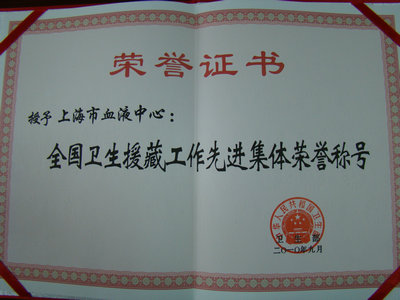 荣誉证书
授予上海市血液中心：
全国卫生援藏工作先进集体荣誉称号
中华人民共和国卫生部
卫生部
二〇一〇年九月